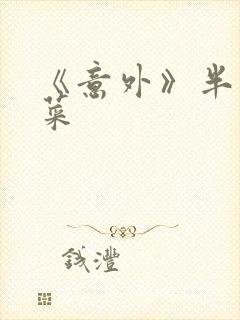 《意外》半
菜
钱澧